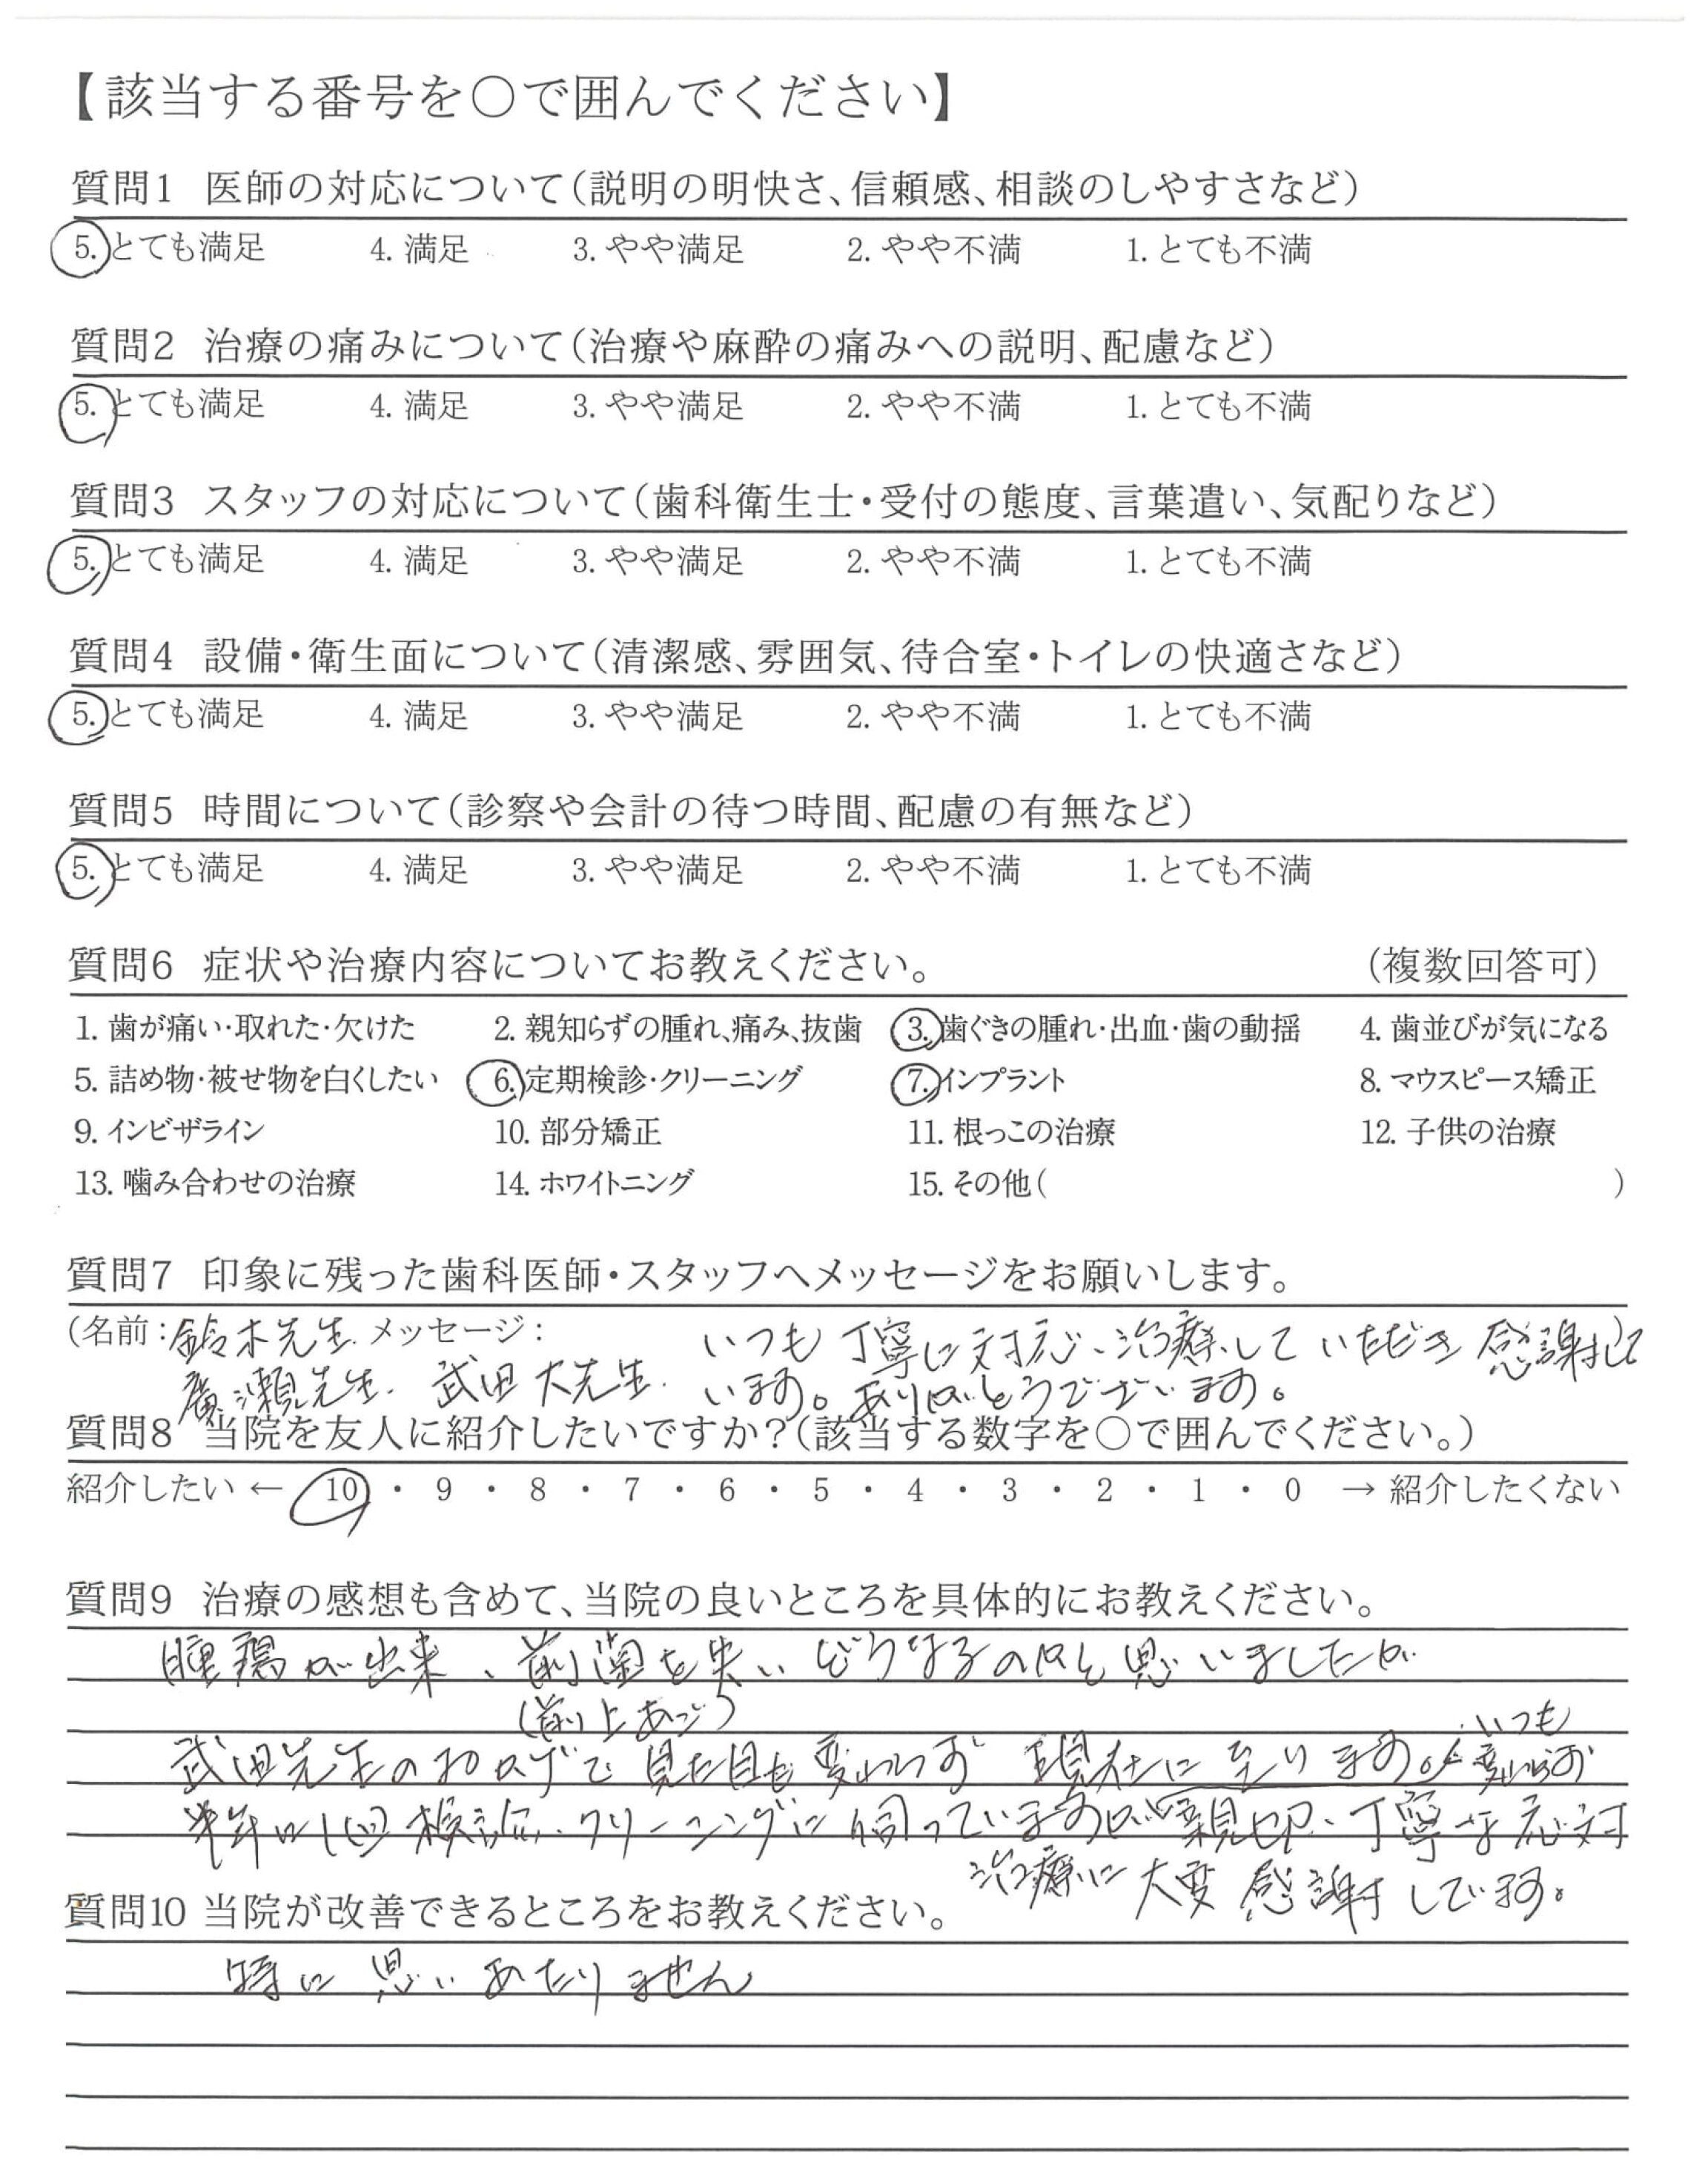 【該当する番号を〇で囲んでください】
質問1 医師の対応について(説明の明快さ、信頼感、相談のしやすさなど)
5. とても満足 4. 満足 3. やや満足 2. やや不満 1. とても不満
質問2 治療の痛みについて(治療や麻酔の痛みへの説明、配慮など)
5. とても満足 4. 満足 3. やや満足 2. やや不満 1. とても不満
質問3 スタッフの対応について(歯科衛生士・受付の態度、言葉遣い、気配りなど)
5. とても満足 4. 満足 3. やや満足 2. やや不満 1. とても不満
質問4 設備・衛生面について(清潔感、雰囲気、待合室・トイレの快適さなど)
5. とても満足 4. 満足 3. やや満足 2. やや不満 1. とても不満
質問5 時間について(診察や会計の待つ時間、配慮の有無など)
5. とても満足 4. 満足 3. やや満足 2. やや不満 1. とても不満
質問6 症状や治療内容についてお教えください。 (複数回答可)
1. 歯が痛い・取れた・欠けた 2. 親知らずの腫れ、痛み、抜歯 3. 歯ぐきの腫れ・出血・歯の動揺 4. 歯並びが気になる
5. 詰め物・被せ物を白くしたい 6. 定期検診・クリーニング 7. インプラント 8. マウスピース矯正
9. インビザライン 10. 部分矯正 11. 根っこの治療 12. 子供の治療
13. 噛み合わせの治療 14. ホワイトニング 15. その他( )
質問7 印象に残った歯科医師・スタッフへメッセージをお願いします。
(名前：鈴木先生. メッセージ： いつも 丁寧に対応、治療して いただき 感謝して
廣瀬先生. 武田 大先生. います。ありがとうございます。
質問8 当院を友人に紹介したいですか？(該当する数字を〇で囲んでください。)
紹介したい ← 10 ・ 9 ・ 8 ・ 7 ・ 6 ・ 5 ・ 4 ・ 3 ・ 2 ・ 1 ・ 0 → 紹介したくない
質問9 治療の感想も含めて、当院の良いところを具体的にお教えください。
腫瘍が出来、前歯を失い どうなるのかと 思いましたが
(前上あご)
武田先生のおかげで 見た目も 変わらず 現在に至ります。 いつも変わらず
半年に1回 検診、クリーニングに伺っていますが 親切、丁寧な応対
治療に 大変 感謝しています。
質問10 当院が改善できるところをお教えください。
特に 思い あたりません